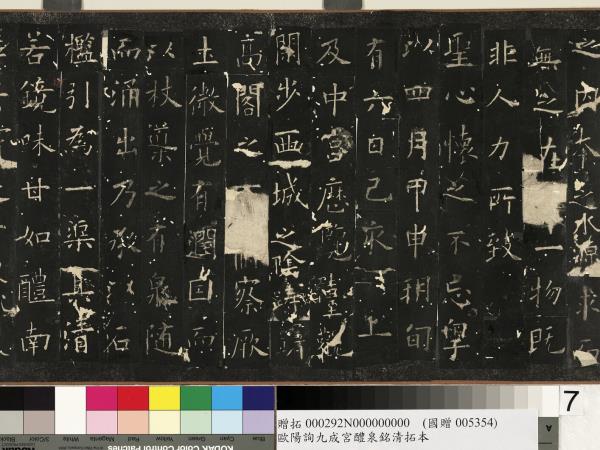 之內本乏水源求而
無之在一物既
非人力所致
聖心懷之不忘粵
以四月甲申朔旬
有六日己亥上
及中宮歷覽臺觀
閑步西城之陰躊躇
高閣之察厥
土微覺有潤因而
以杖導之有泉隨
而涌出乃承以石
檻引為一渠其清
若鏡味甘如醴南
7
贈拓 000292N000000000 (國贈 005354)
歐陽詢九成宮醴泉銘清拓本
A
Black 3/Color White Magenta Red Yellow Green Cyan Blue
KODAK Color Control Patches